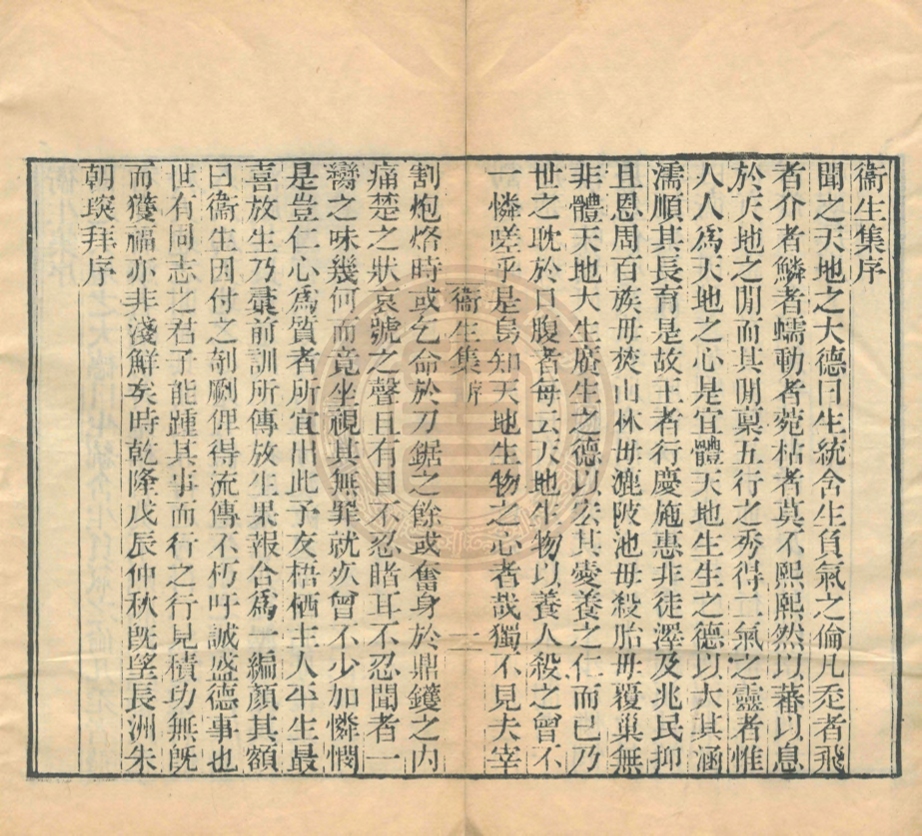 衞生集序
聞之天地之大德曰生統含生負氣之倫凡忝者飛
者介者鱗者蠕動者菀枯者莫不熙熙然以蕃以息
於天地之閒而其閒稟五行之秀得二氣之靈者惟
人人爲天地之心是宜體天地生生之德以大其涵
濡順其長育是故王者行慶施惠非徒澤及兆民抑
且恩周百族毋焚山林毋漉陂池毋殺胎毋覆巢無
非體天地大生廣生之德以宏其愛養之仁而已乃
世之耽於口腹者每云天地生物以養人殺之曾不
一憐嗟乎是烏知天地生物之心者哉獨不見夫宰
衞生集 序 一
割炮烙時或乞命於刀鋸之餘或奮身於鼎鑊之内
痛楚之狀哀號之聲且有目不忍睹耳不忍聞者一
臠之味幾何而竟坐視其無罪就死曾不少加憐憫
是豈仁心爲質者所宜出此予友梧栖主人平生最
喜放生乃彚前訓所傳放生果報合爲一編顏其額
曰衞生因付之剞劂俾得流傳不朽吁誠盛德事也
世有同志之君子能踵其事而行之行見積功無旣
而獲福亦非淺鮮矣時乾隆戊辰仲秋旣望長洲朱
朝瑛拜序